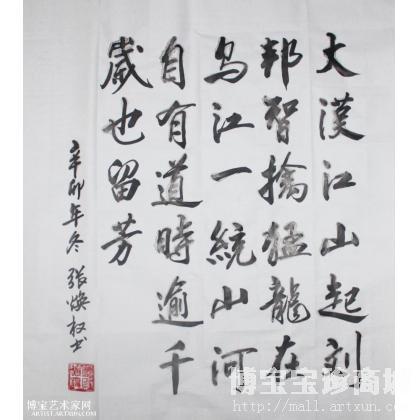 大漢江山起刘
邦智擒猛龍在
乌江一統山河
自有道時逾千
歲也留芳
辛卯年冬 張焕权书
博宝艺术家网
博宝宝珍商城
http://mall.artxun.com